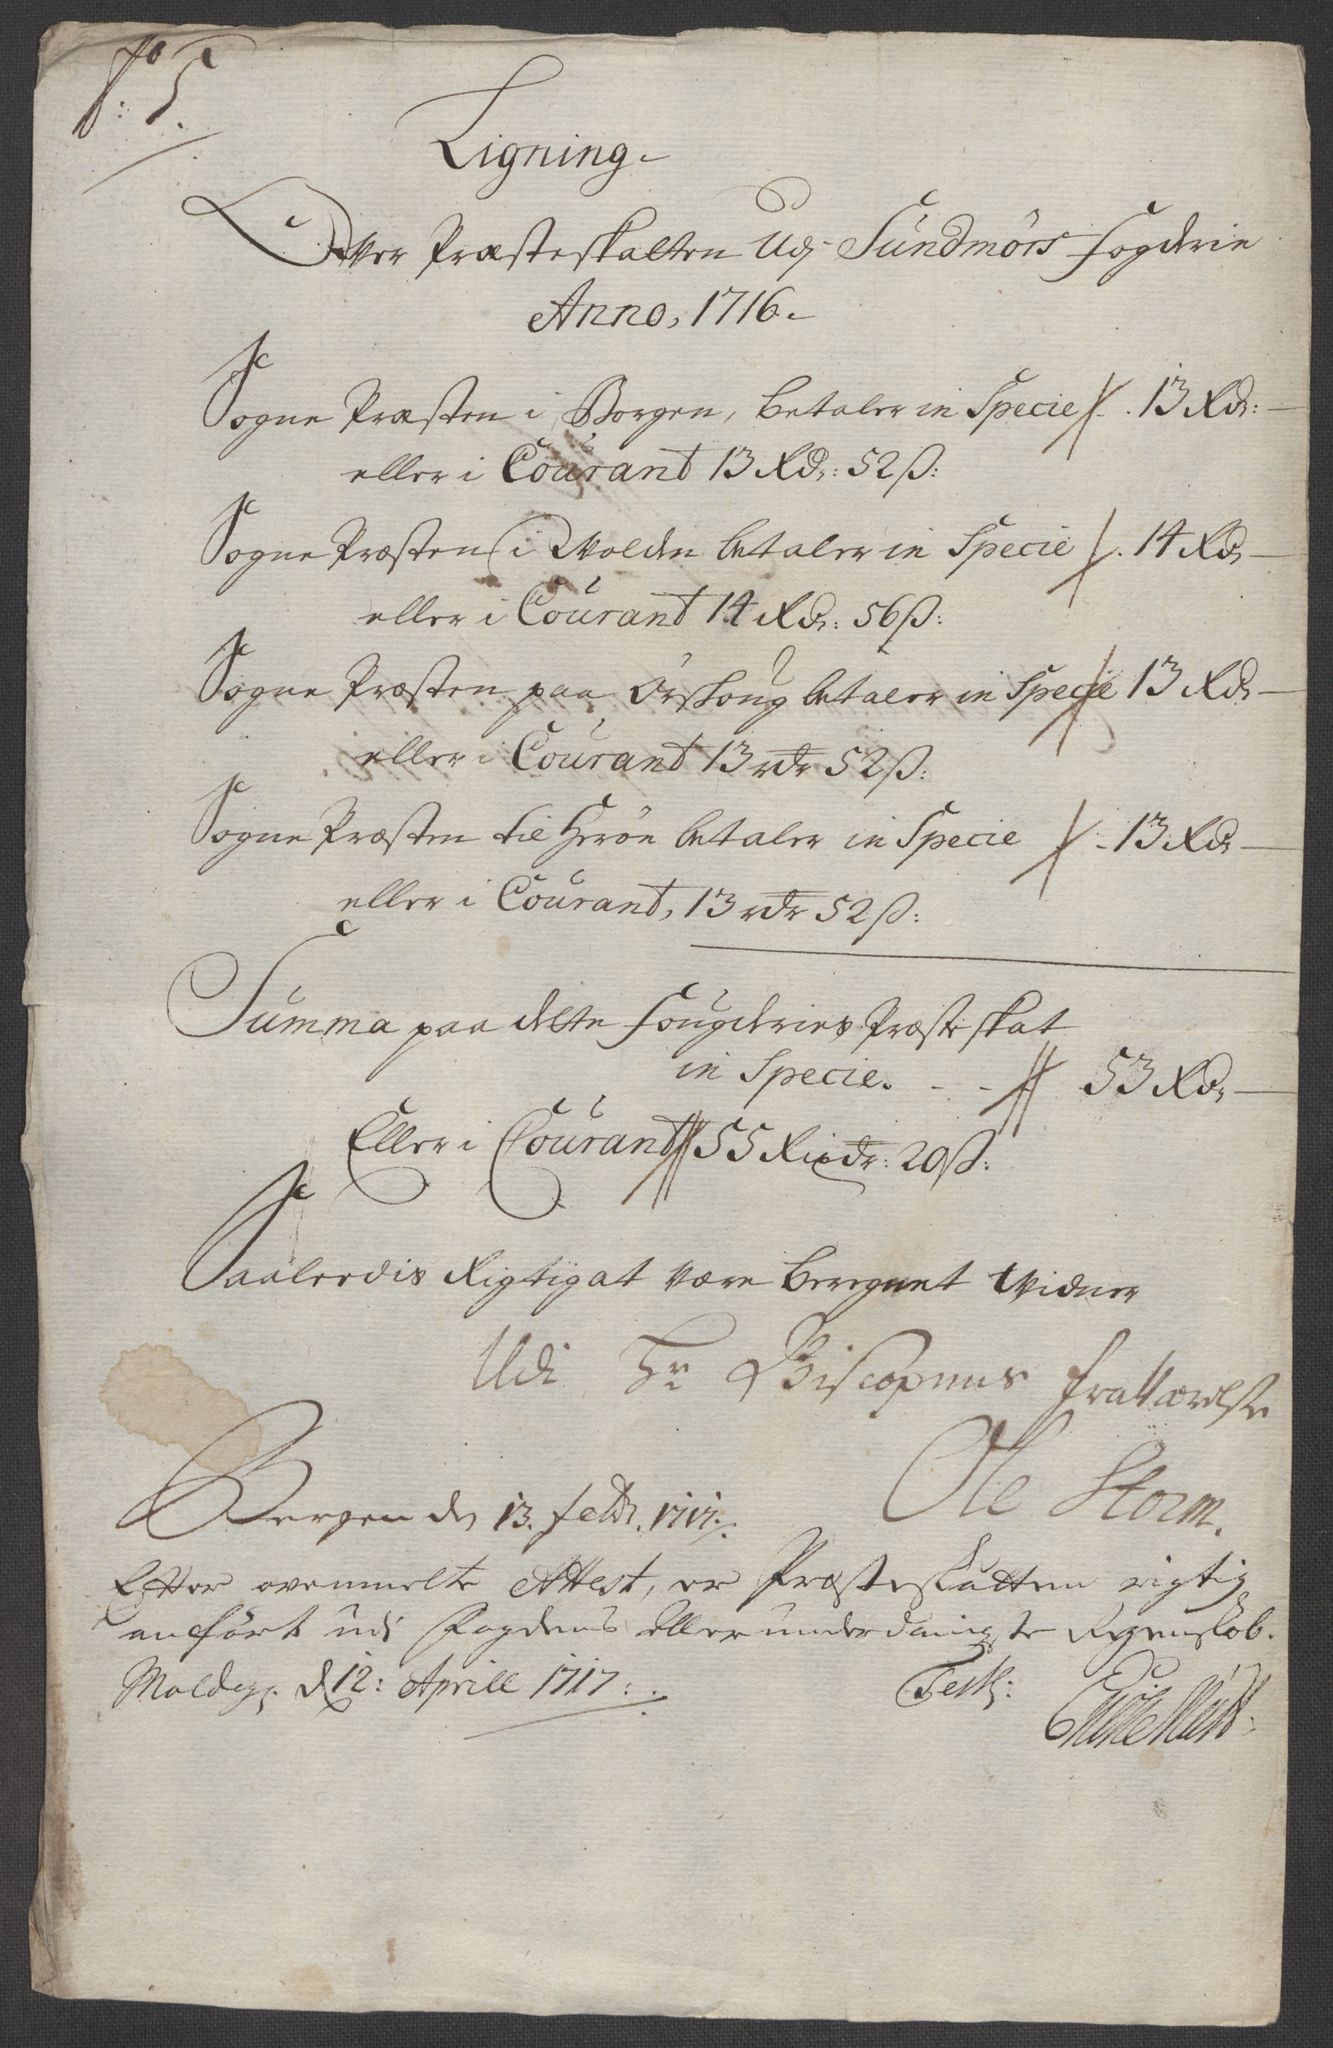 No 5.
Ligning.
Over Præsteskatten Udj Sundmørs fogderie
Anno, 1716.
Sogne Præsten i Borgen, betaler in Specie 13 Rdr:
eller i Courant 13 Rdr: 52 ß:
Sogne Præsten i Wolden betaler in Specie 14 Rdr
eller i Courant 14 Rdr: 56 ß:
Sogne Præsten paa Ørskoug betaler in Specie 13 Rdr
eller i Courant 13 rdr 52 ß:
Sogne Præsten til Herøe betaler in Specie 13 Rdr
eller i Courant, 13 rdr 52 ß:
Summa paa dette fougderies Præsteskat
in Specie. 53 Rdr
Eller i Courant 55 Rixdr: 20 ß:
Saaledis Rigtig at være beregnet Widner
Udi Hr Biscopens fraværelse
Ole Storm.
Bergen dn 13. febr. 1717.
Effter ovenmelte Attest, er Præsteskatten rigtig
anført udi Fogdens allerunderdanigste Regenskob.
Moldeg. d 12: Aprill 1717.
Test: